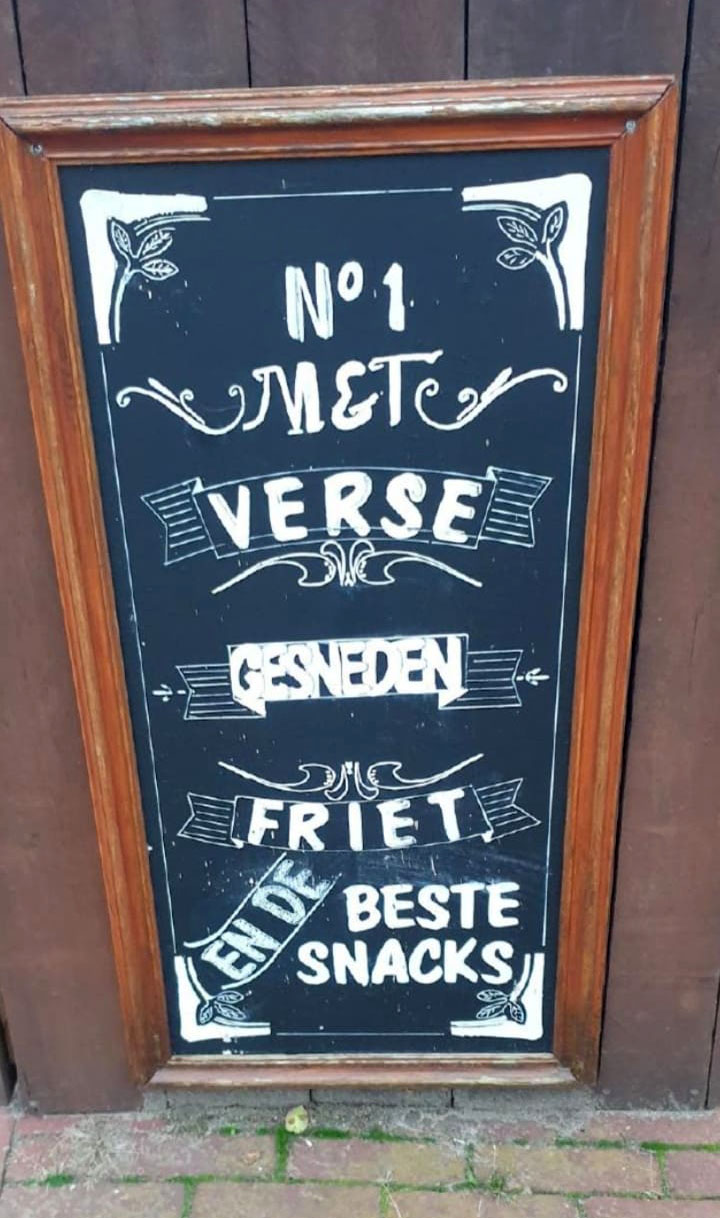 Nº 1
M&T
VERSE
GESNEDEN
FRIET
EN DE
BESTE
SNACKS